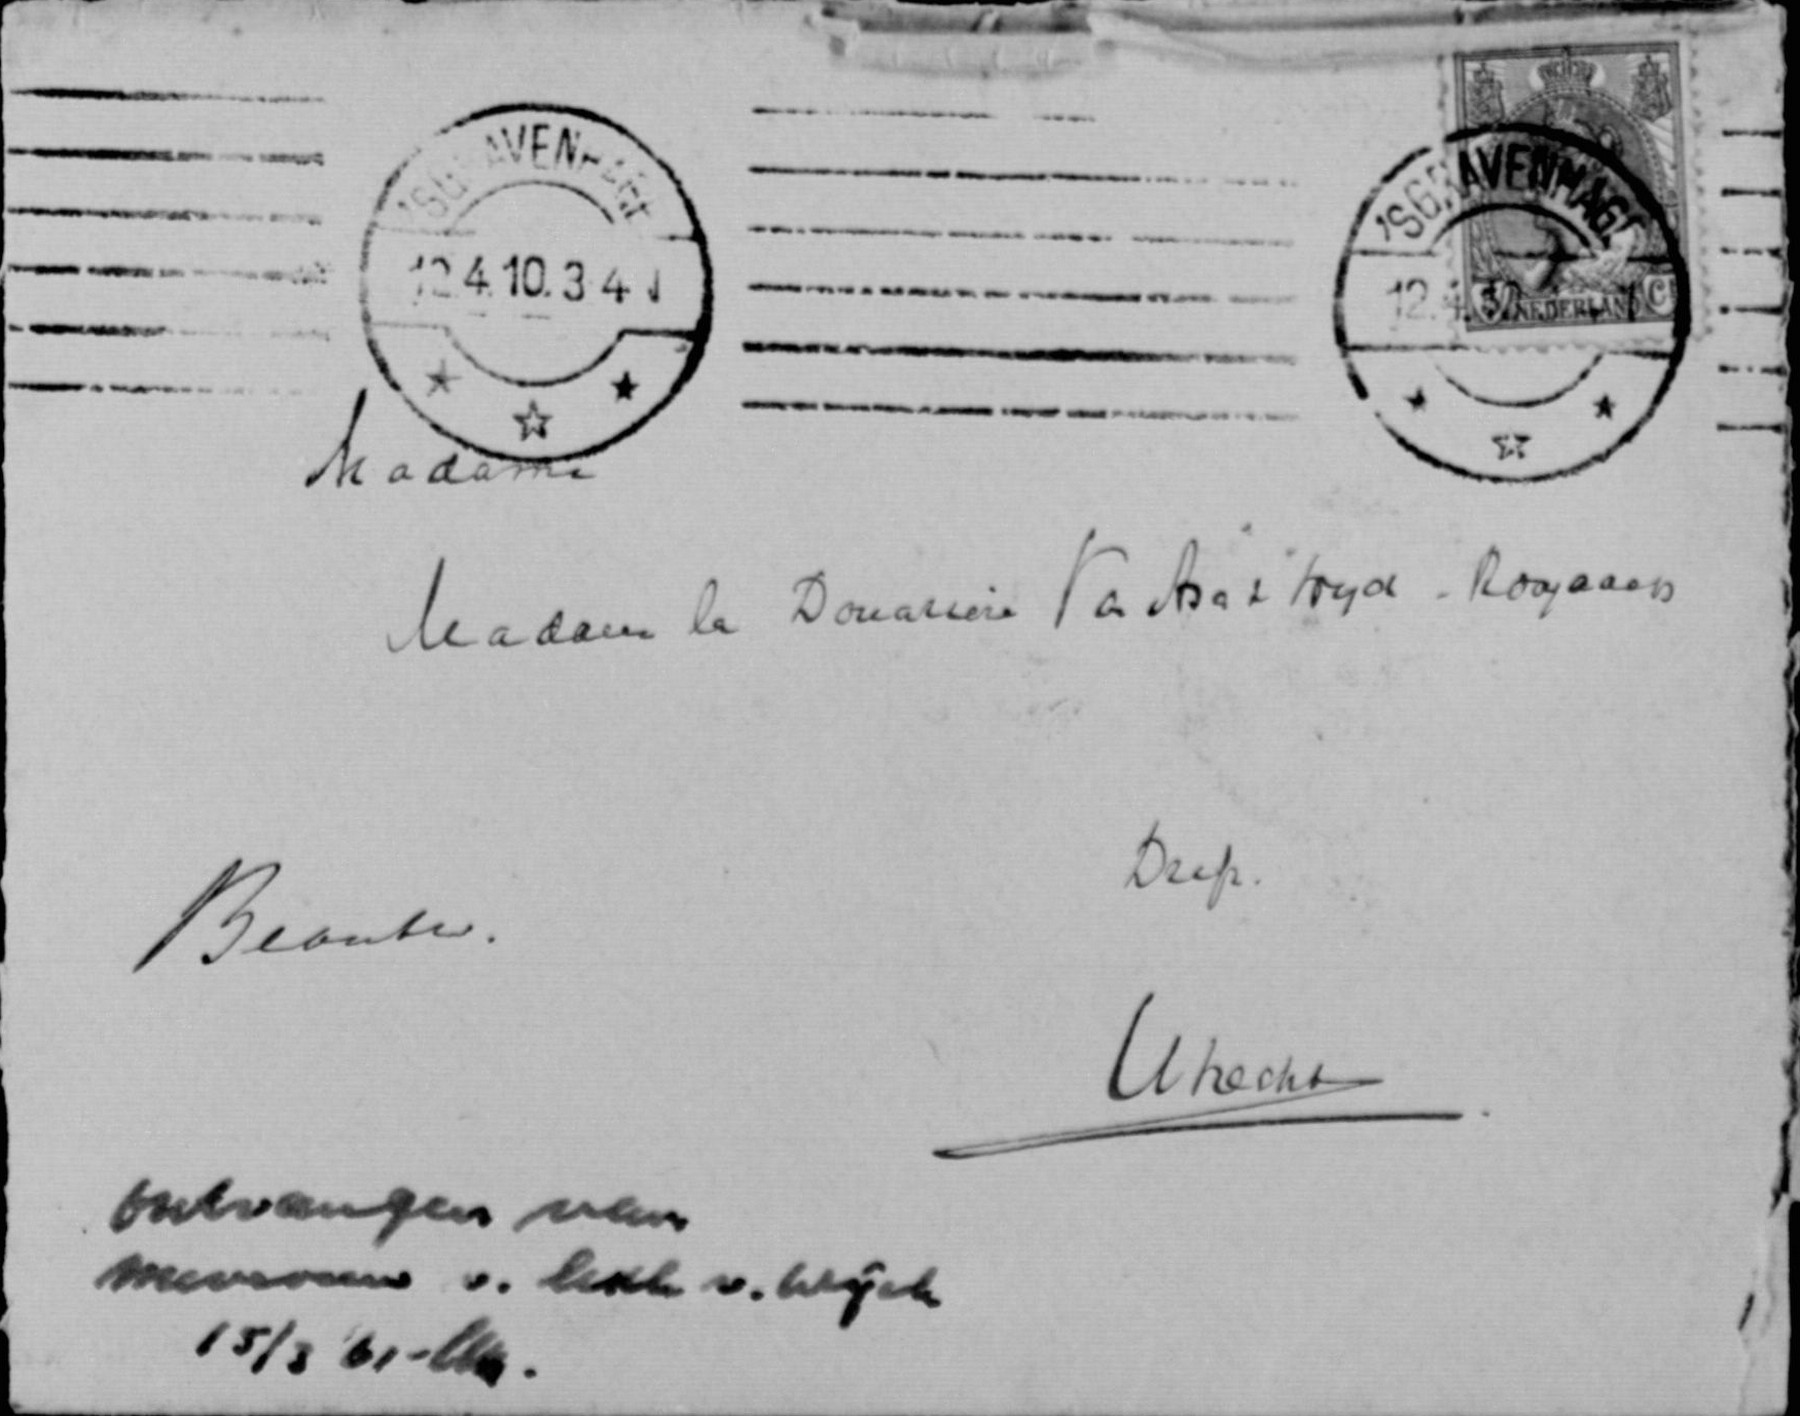 'SGRAVENHAGE
12.4.10.3-4 N
'SGRAVENHAGE
12.4.
NEDERLAND
Madame
Madame la Douairière Van Asch - Royaards
Drift.
Utrecht
ontvangen van
mevrouw v. v. Wijck
15/3 '61-